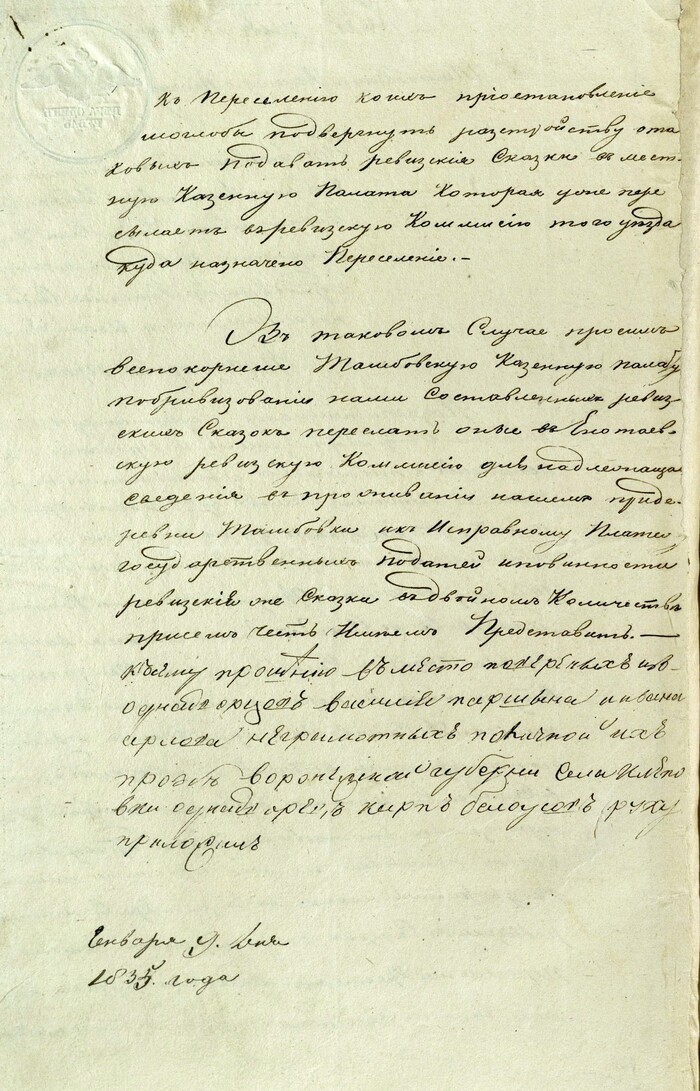 къ Переселенію коихъ пріостановленіе
моглобы подвергнуть разстройству ота
ковыхъ подавать ревизскія Сказки въ мест-
ную Казенную Палата Которая уже пере
сылаетъ въ ревизскую Коммисію того уѣзда
куда назначено Переселеніе.-
Въ таковомъ Случае просимъ
всепокорнеше Тамбовскую Казенную палату
пообривизованіи нами Составленныхъ ревиз-
скихъ Сказокъ переслать оные въ Енотаев-
скую ревизскую Коммисію для надлежаща
сведения въ проживаніи нашемъ приде-
ревни Тамбовки икъ Исправному Плате
государственныхъ податей иповинности
ревизскія же Сказки въдвойномъ Количествѣ
присемъ честь Имѣемъ Представить.-
Ксему прошѣнию въместо
однадворцовъ василия паршына иивана
неграмотныхъ поличной ихъ
прозбѣ воронежской губерни Села
вки однадворецъ карпъ белоусовъ руку
приложилъ
Енваря 9. дня
1835. года